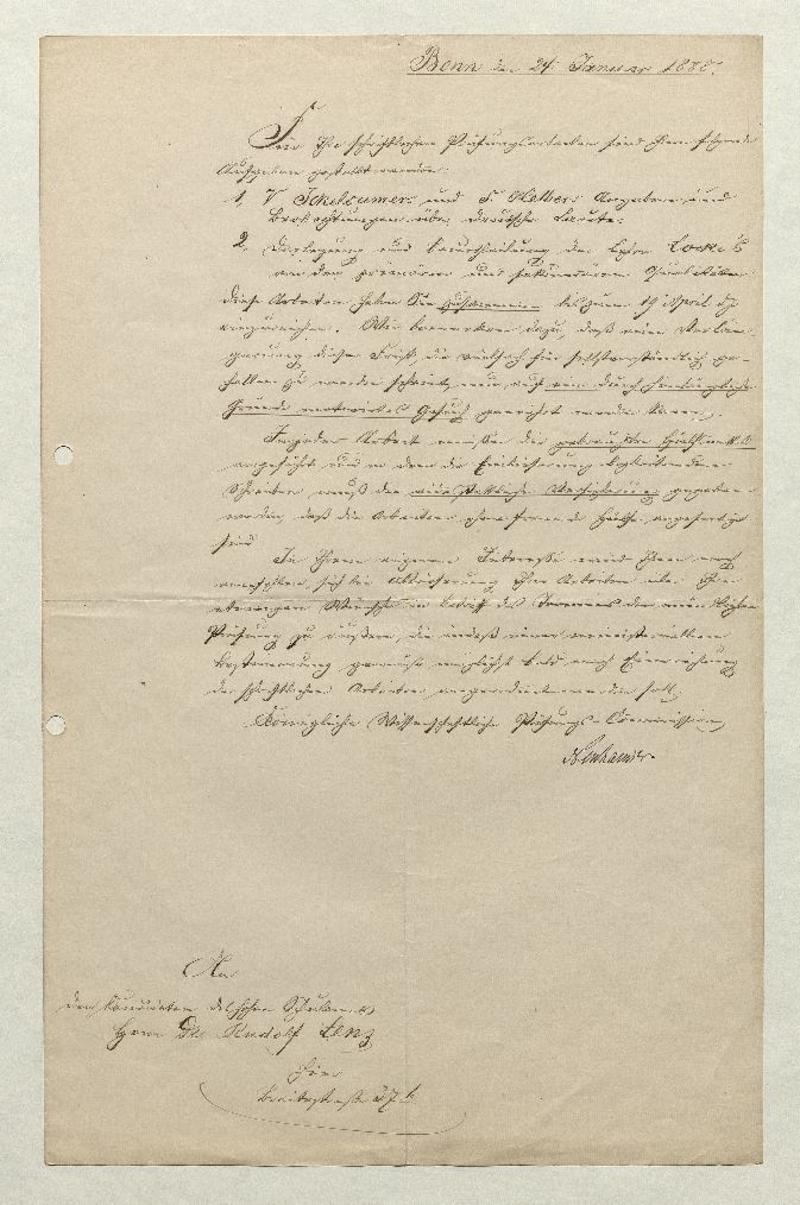 Bonn den 24. Januar 1888.
Für Ihre schriftlichen Prüfungsarbeiten sind Ihnen folgende
Aufgaben gestellt worden:
1, V Ickelsamers und Angaben und
Beobachtungen über deutsche Laute.
2, Darlegung und Beurtheilung der Lehre Locke's
von den primären und sekundären Qualitäten.
Diese Arbeiten haben Sie bis zum 19 April
einzureichen. Wir bemerken dazu, daß eine Verlän-
gerung dieser Frist, die vielfach für selbstverständlich ge-
halten zu werden scheint, nur auf ein durch
Gründe motivirtes Gesuch gewährt werden kann.
In jeder Arbeit müssen die gebrauchten Hülfsmittel
angeführt und in dem die Einlieferung begleitenden
Schreiben muß die eidesstattliche Versicherung gegeben
werden, daß die Arbeiten ohne fremde Hülfe angefertigt
sind
In Ihrem eigenen Interesse wird Ihnen noch
empfohlen, sich bei Ablieferung Ihrer Arbeiten über Ihre
etwaigen Wünsche in betreff des Termines der mündlichen
Prüfung zu äußern, die indeß einer ministeriellen
Bestimmung gemäß möglichst bald nach Einreichung
der schriftlichen Arbeiten angeordnet werden soll.
Königliche Wissenschaftliche Prüfungs-Commission
An
den Kandidaten des höhern Schulamts
Herrn Dr. Rudolf Lenz
Hier
Breitestraße 37